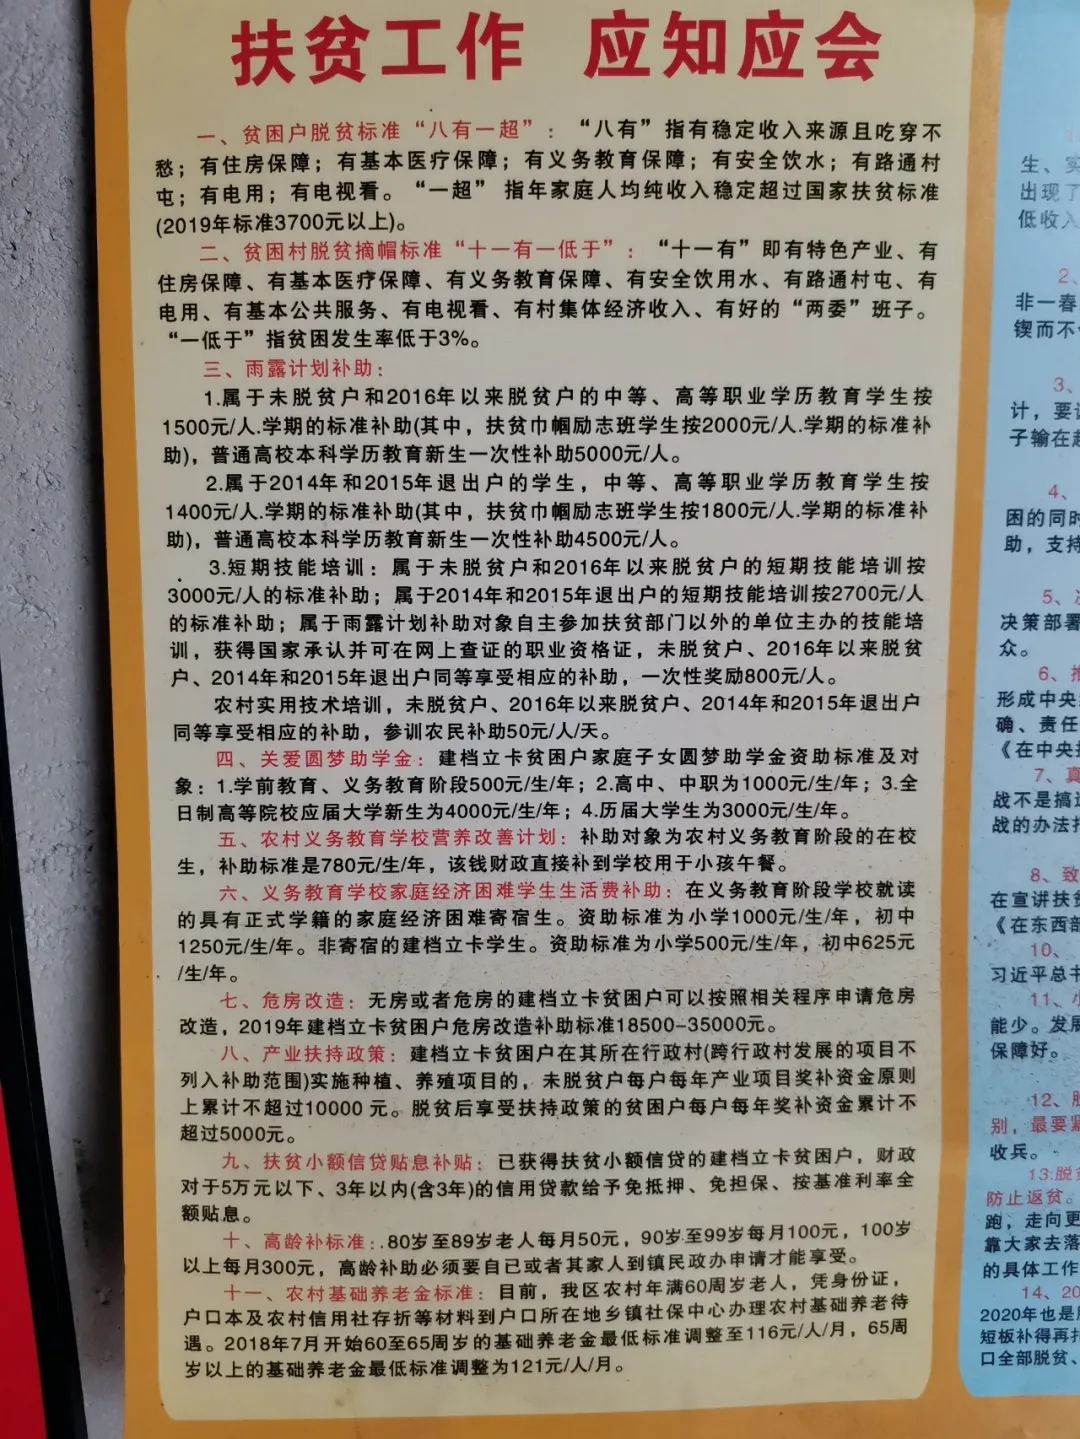 扶贫工作 应知应会
一、贫困户脱贫标准“八有一超”：“八有”指有稳定收入来源且吃穿不
愁；有住房保障；有基本医疗保障；有义务教育保障；有安全饮水；有路通村
屯；有电用；有电视看。“一超” 指年家庭人均纯收入稳定超过国家扶贫标准
(2019年标准3700元以上)。
二、贫困村脱贫摘帽标准“十一有一低于”：“十一有”即有特色产业、有
住房保障、有基本医疗保障、有义务教育保障、有安全饮用水、有路通村屯、有
电用、有基本公共服务、有电视看、有村集体经济收入、有好的“两委”班子。
“一低于”指贫困发生率低于3%。
三、雨露计划补助：
1.属于未脱贫户和2016年以来脱贫户的中等、高等职业学历教育学生按
1500元/人.学期的标准补助(其中，扶贫巾帼励志班学生按2000元/人.学期的标准补
助)，普通高校本科学历教育新生一次性补助5000元/人。
2.属于2014年和2015年退出户的学生，中等、高等职业学历教育学生按
1400元/人.学期的标准补助(其中，扶贫巾帼励志班学生按1800元/人.学期的标准补
助)，普通高校本科学历教育新生一次性补助4500元/人。
3.短期技能培训：属于未脱贫户和2016年以来脱贫户的短期技能培训按
3000元/人的标准补助；属于2014年和2015年退出户的短期技能培训按2700元/人
的标准补助；属于雨露计划补助对象自主参加扶贫部门以外的单位主办的技能培
训，获得国家承认并可在网上查证的职业资格证，未脱贫户、2016年以来脱贫
户、2014年和2015年退出户同等享受相应的补助，一次性奖励800元/人。
农村实用技术培训，未脱贫户、2016年以来脱贫户、2014年和2015年退出户
同等享受相应的补助，参训农民补助50元/人/天。
四、关爱圆梦助学金：建档立卡贫困户家庭子女圆梦助学金资助标准及对
象：1.学前教育、义务教育阶段500元/生/年；2.高中、中职为1000元/生/年；3.全
日制高等院校应届大学新生为4000元/生/年；4.历届大学生为3000元/生/年。
五、农村义务教育学校营养改善计划：补助对象为农村义务教育阶段的在校
生，补助标准是780元/生/年，该钱财政直接补到学校用于小孩午餐。
六、义务教育学校家庭经济困难学生生活费补助：在义务教育阶段学校就读
的具有正式学籍的家庭经济困难寄宿生。资助标准为小学1000元/生/年，初中
1250元/生/年。非寄宿的建档立卡学生。资助标准为小学500元/生/年，初中625元
/生/年。
七、危房改造：无房或者危房的建档立卡贫困户可以按照相关程序申请危房
改造，2019年建档立卡贫困户危房改造补助标准18500-35000元。
八、产业扶持政策：建档立卡贫困户在其所在行政村(跨行政村发展的项目不
列入补助范围)实施种植、养殖项目的，未脱贫户每户每年产业项目奖补资金原则
上累计不超过10000 元。脱贫后享受扶持政策的贫困户每户每年奖补资金累计不
超过5000元。
九、扶贫小额信贷贴息补贴：已获得扶贫小额信贷的建档立卡贫困户，财政
对于5万元以下、3年以内(含3年)的信用贷款给予免抵押、免担保、按基准利率全
额贴息。
十、高龄补标准：.80岁至89岁老人每月50元，90岁至99岁每月100元，100岁
以上每月300元，高龄补助必须要自已或者其家人到镇民政办申请才能享受。
十一、农村基础养老金标准：目前，我区农村年满60周岁老人，凭身份证，
户口本及农村信用社存折等材料到户口所在地乡镇社保中心办理农村基础养老待
遇。2018年7月开始60至65周岁的基础养老金最低标准调整至116元/人/月，65周
岁以上的基础养老金最低标准调整为121元/人/月。
生、实
出现了
低收入
2、
非一春
锲而不
3、
计，要
子输在
4、
困的同时
助，支持
5、
决策部署
众。
6、
形成中央
确、责任
《在中央
7、真
战不是搞
战的办法
8、致
在宣讲扶贫
《在东西部
10、
习近平总书
11、
能少。发展
保障好。
12、
别，最要紧
收兵。
13.脱贫
防止返贫。
跑，走向更
靠大家去落
的具体工作
14、20
2020年也是
短板补得再
口全部脱贫、